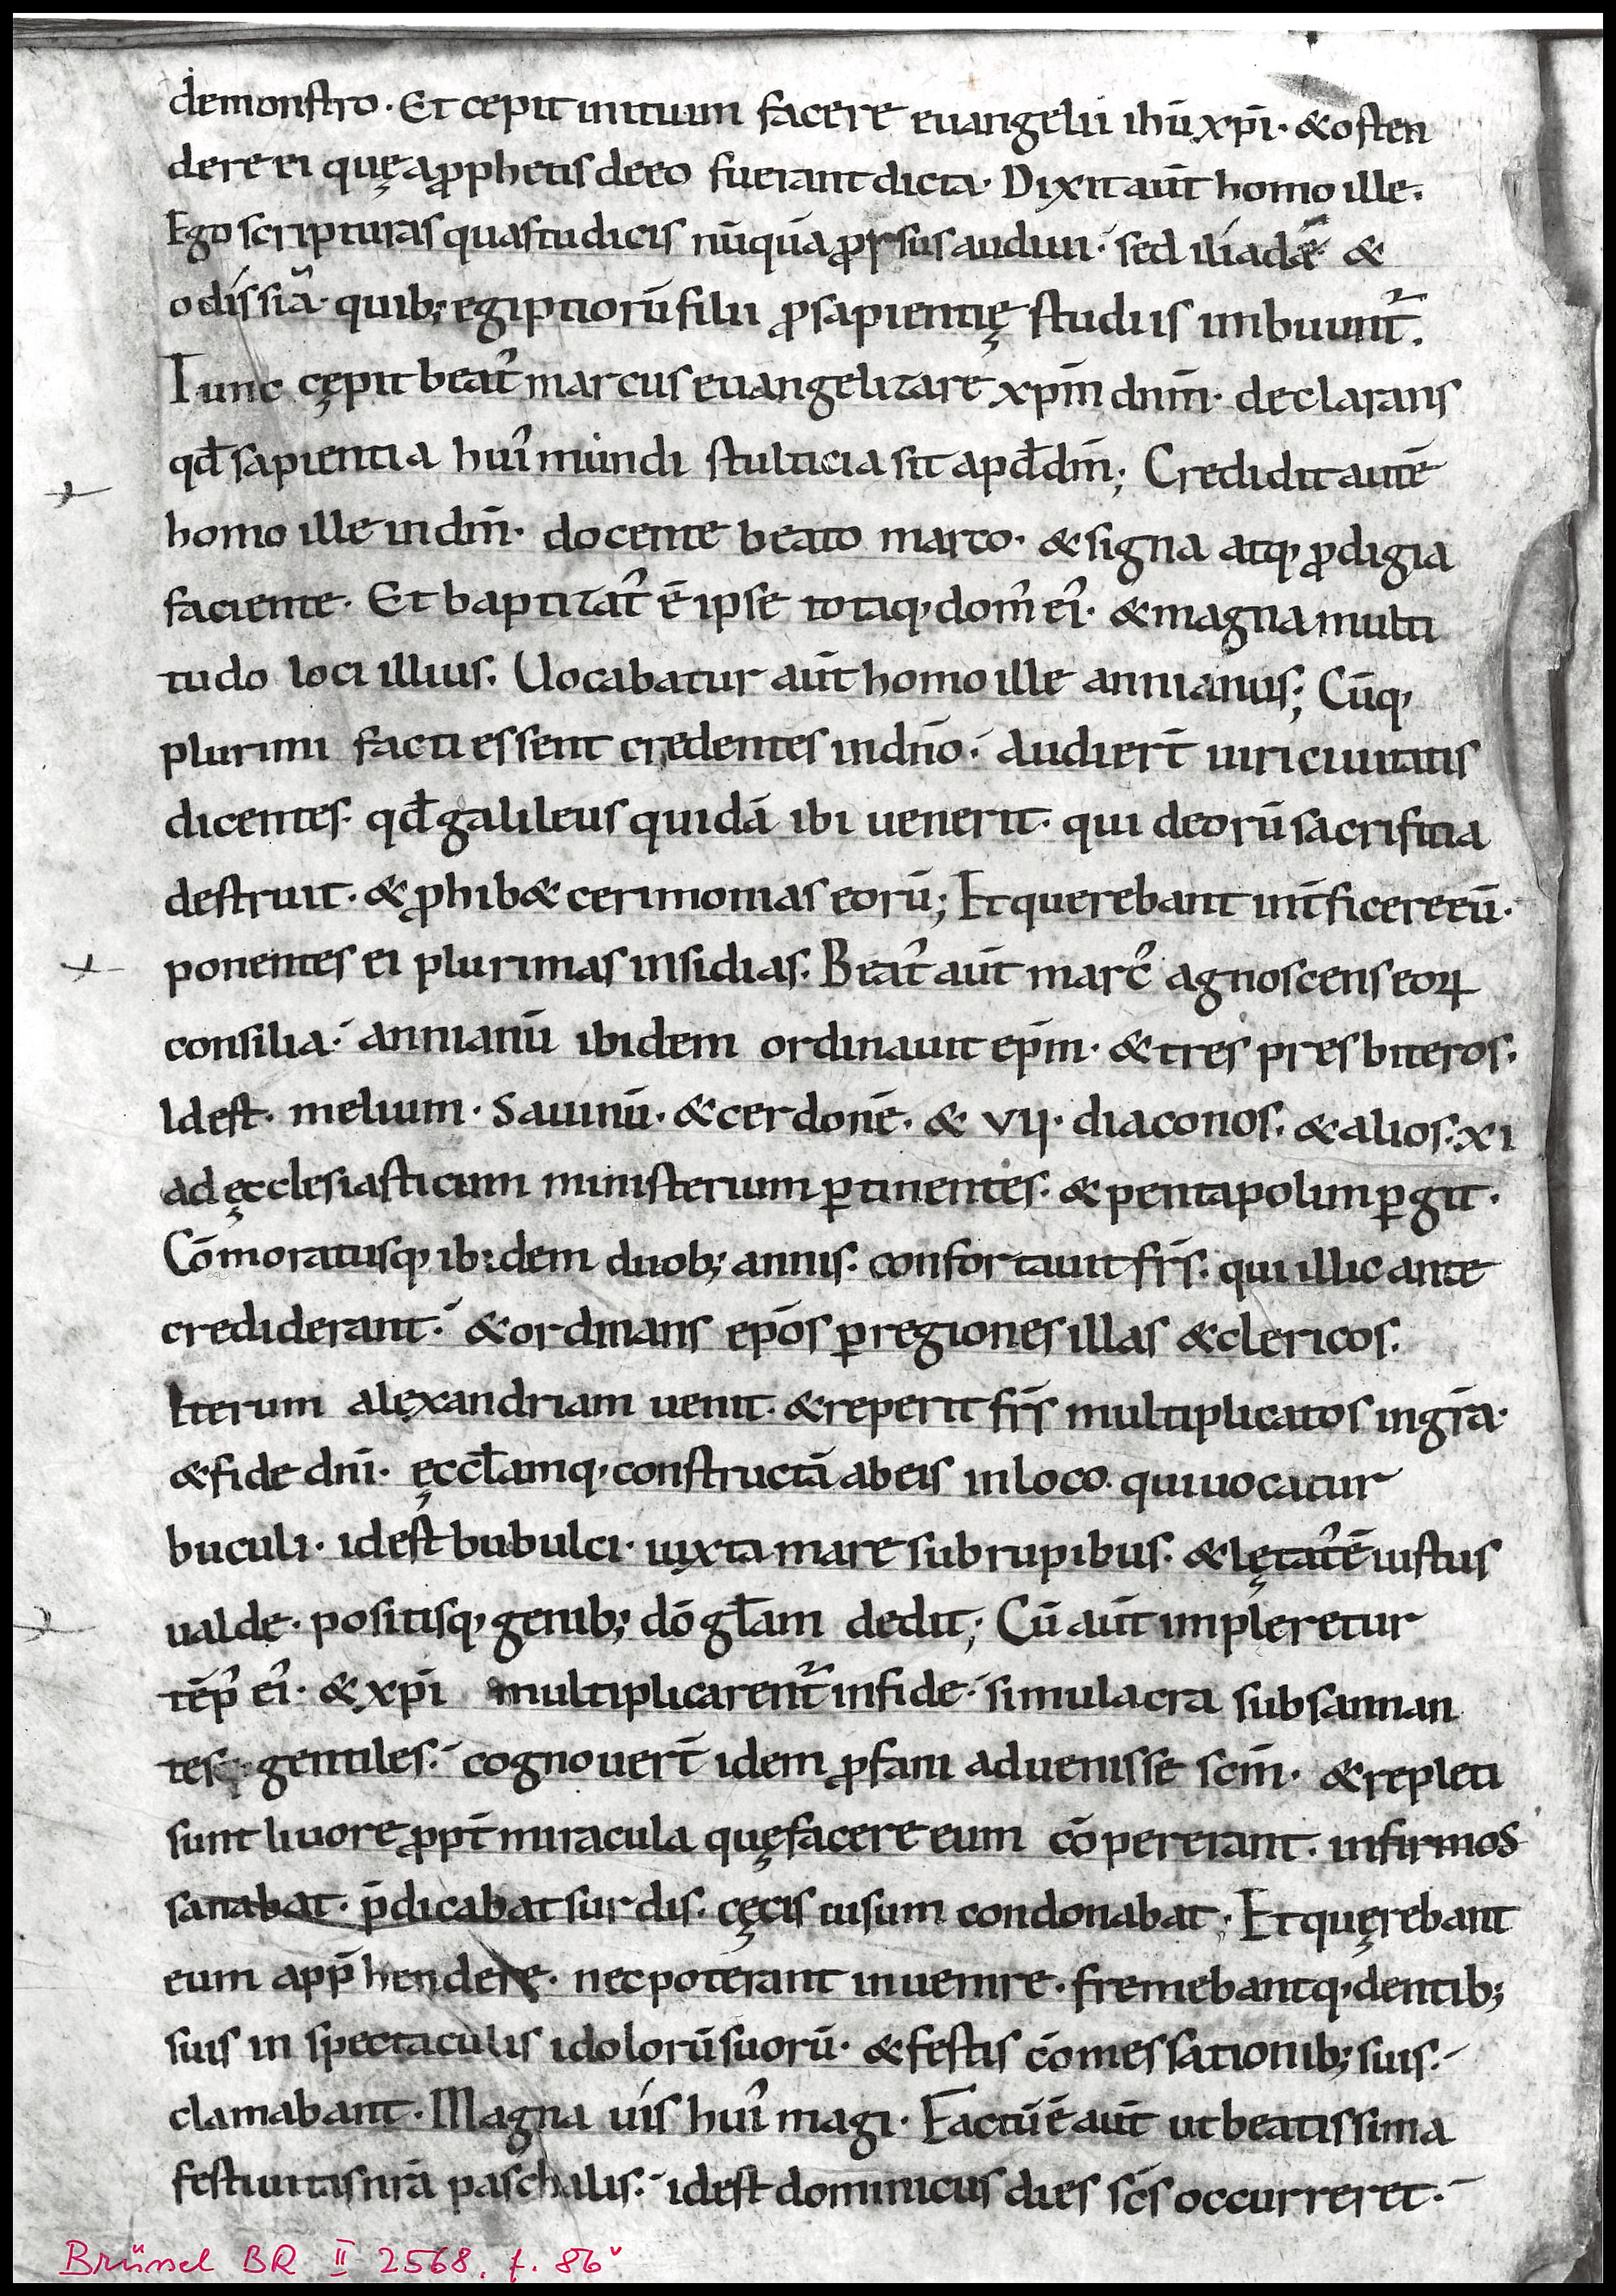 demonstro· Et cepit initium facere euangelii ihū xp̄i· & osten
dere ei quę a ꝓphetis de eo fuerant dicta· Dixit aūt homo ille.
Ego scripturas quas tu dicis nūquā ꝓrsus audiui· sed iliadē &
odissiā· quib; egiptiorū filii ꝓ sapientię studiis imbuunt᷑.
Tunc cępit beatꝰ marcus euangelizare xp̄m dn̄m· declarans
qd̄ sapientia huiꝰ mundi stulticia sit apd̄ dm̄; Credidit autē
homo ille in dm̄· docente beato marco· & signa atq; ꝓdigia
faciente· Et baptizatꝰ ē ipse totaq; domꝰ eiꝰ· & magna multi
tudo loci illius. Uocabatur aūt homo ille annianus; Cūq;
plurimi facti essent credentes in dn̄o· audiert̄ uiri ciuitatis
dicentes· qd̄ galileus quidā ibi uenerit· qui deorū sacrificia
destruit· & ꝓhib& cerimonias eorū; Et querebant int̄ficere eū·
ponentes ei plurimas insidias. Beatꝰ aūt marcꝰ agnoscens eoꝝ
consilia· annianū ibidem ordinauit ep̄m· & tres presbiteros.
Idest· melium· Sauinū· & cerdonē· & vii· diaconos. & alios· xi
ad ęcclesiasticum ministerium ꝑtinentes· & pentapolim ꝑgit·
Cōmoratusq; ibidem duob; annis· confortauit fr̄s· qui illic ante
crediderant· & ordinans ep̄os ꝑ regiones illas & clericos.
Iterum alęxandriam uenit· & reperit fr̄s multiplicatos in gr̄a·
& fide dn̄i· ęccl̄amq; constructā ab eis in loco· qui uocatur
buculi· idest bubulci· iuxta mare sub rupibus· & lętatꝰ ē iustus
ualde· positisq; genib; dō gl̄am dedit; Cū aūt impleretur
tēpꝰ eiꝰ· & xp̄i multiplicarent᷑ in fide· simulacra subsannan
tes gentiles· cognouert̄ idem ꝓfani aduenisse scm̄· & repleti
sunt liuore ꝓpt̄ miracula quę facere eum cōpererant· infirmos
sanabat· p̄dicabat surdis· cęcis uisum condonabat; Et quęrebant
eum app̄hendere· nec poterant inuenire· fremebantq; dentib;
suis in spectaculis idolorū suorū· & festis cōmessationib; suis·
clamabant· Magna uis huiꝰ magi· Factū ē aūt ut beatissima
festiuitas nr̄a paschalis· idest dominicus dies scs̄ occurreret·
Brüssel BR II 2568, f. 86v